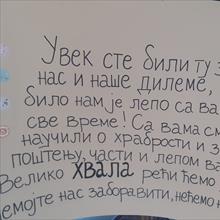 Увек сте били ту з
нас и наше дилеме,
било нам је лепо са ва
све време! Са вама см
научили о храбрости и з
поштењу, части и лепом ва
Велико ХВАЛА рећи ћемо
емојте нас заборавити, нећемо н